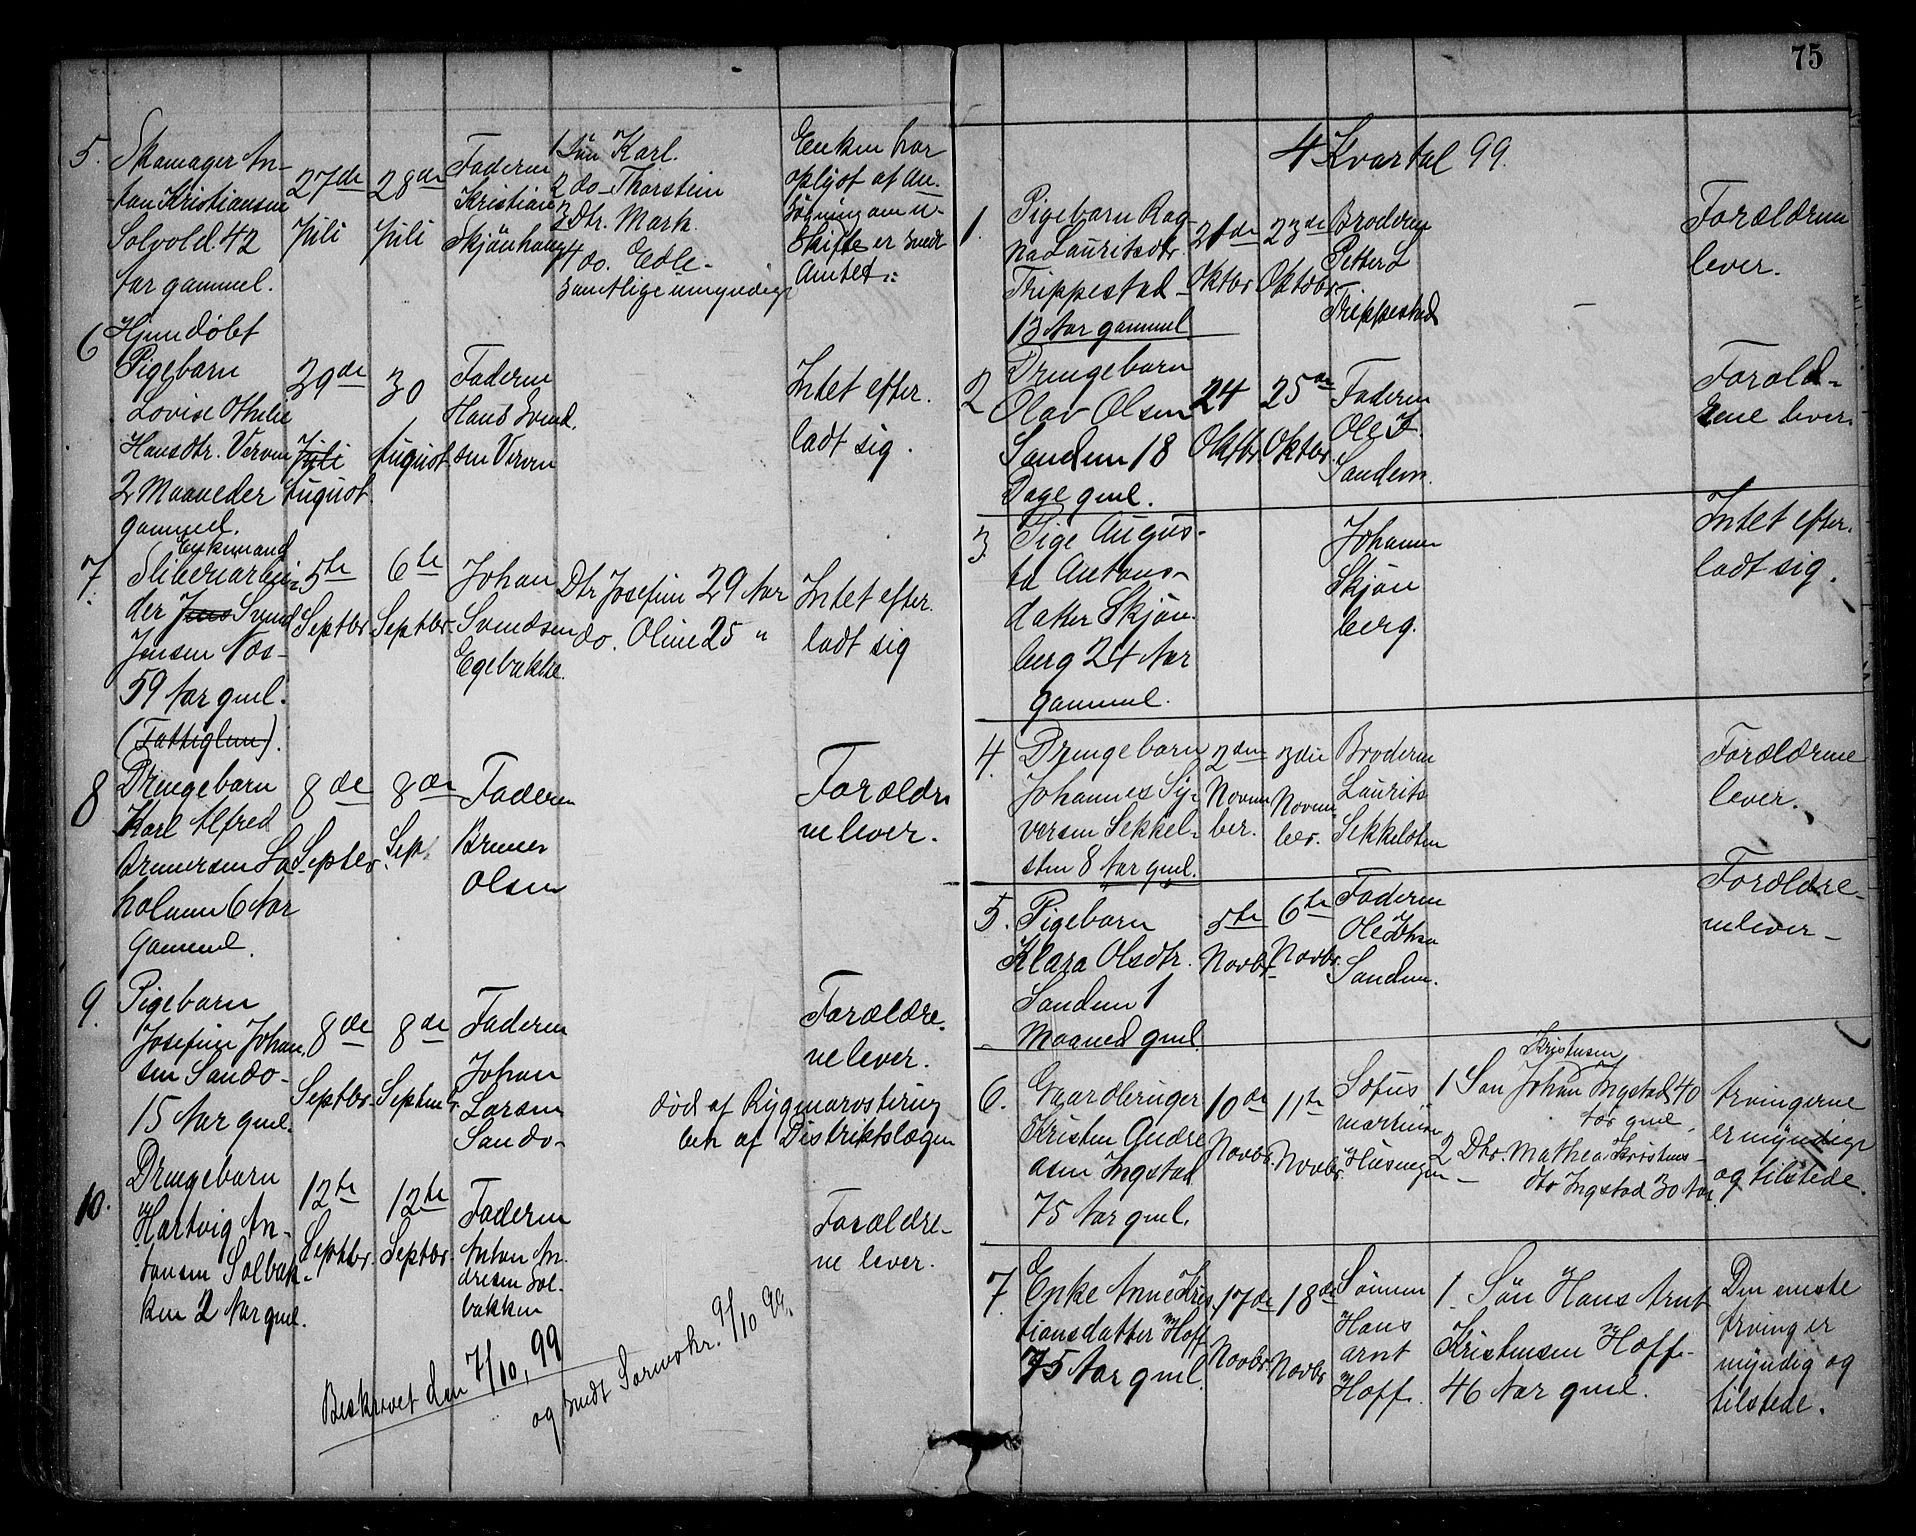 75
5.
Skomager An-
ton Kristiansen
Solvold. 42
Aar gammel.
27de
Juli
28de
Juli
Faderen
Kristian
Skjönhaug
1 Sön Karl.
2 do- Thorstein
3 Dtr. Marth.
4 do. Edle-
samtlige umyndige
Enken har
oplyst at An-
søgning om u-
skifte er sendt
Amtet.
6
Hjemdøbt
Pigebarn
Lovise Othilie
Hansdtr. Verven
2 Maaneder
gammel.
29de
Juli
August
30
August
Faderen
Hans Svend.
sen Verven
Intet efter.
ladt sig.
7.
Enkemand
Sliberiarbei-
der Jens Svend
Jensen Næs-
59 Aar gml.
(Fattiglem).
5te
Septbr
6te
Septbr.
Johan
Svendsen
Egebakke.
Dtr Josefine 29 Aar
do. Oline 25 "
Intet efter.
ladt sig
8
Drengebarn
Karl Alfred
Brunersen La
holmen 6 Aar
gammel.
8de
Septbr.
8de
Sep.
Faderen
Bruner
Olsen
Forældre
ne lever.
9.
Pigebarn
Josefine Johan.
sen Sando-
15 Aar gml.
8de
Septbr.
8de
Septmb
Faderen
Johan
Larsen
Sando-
død af Rygmarvstæring
beh af Distriktslægen
Forældre.
ne lever.
10.
Drengebarn
Hartvig An-
tonsen Solbak-
ken 2 Aar gml.
12te
Septbr.
12te
Septbr.
Faderen
Anton An.
dresen Sol-
bakken
Forældre-
ne lever.
Beskrevet den 7/10, 99
og sendt Sorenskr. 9/10 99.
4 Kvartal 99.
1.
Pigebarn Rag-
na Lauritsdtr.
Trippestad
13 Aar gammel
21de
Oktbr
23de
Oktobr
Broderen
Petter L
Trippestad
-
Forældrene
lever.
2
Drengebarn
Olav Olsen
Sandem 18
Dage gml.
24
Oktbr
25de
Oktbr.
Faderen
Ole J.
Sandem.
Foræld-
rene lever.
3
Pige Augus-
ta Antons-
datter Skjön.
berg 24 Aar
gammel.
Johannes
Skjön
berg.
Intet efter.
ladt sig.
4.
Drengebarn
Johannes Sy-
versen Sekkel-
sten 8 Aar gml.
2den
Novem
ber.
3die
Novem
ber.
Broderen
Laurits
Sekkelsten
Forældrene
lever.
5.
Pigebarn
Klara Olsdtr.
Sandem 1
Maaned gml.
5te
Novbr.
6te
Novbr.
Faderen
Ole Jhsn
Sandem.
Forældre-
ne lever-
6.
Gaardbruger
Kristen Andre
asen Ingstad
75 Aar gml.
10de
Novbr.
11te
Novbr.
Sofus
Martinsen
Huseugen
Kristensen
1 Søn Johan Ingstad 40
Aar gml.
2 Dtr. Mathea Kristens-
dtr Ingstad 30 Aar
Arvingerne
er myndige
og tilstede.
7.
Enke Anne Kris
tiansdatter Hoff
75 Aar gml.
17de
Novbr.
18de
Novbr
Sönnen
Hans
Arnt
Hoff.
1. Sön Hans Arnt
Kristensen Hoff-
46 Aar gml.
Den eneste
Arving er
myndig og
tilstede.